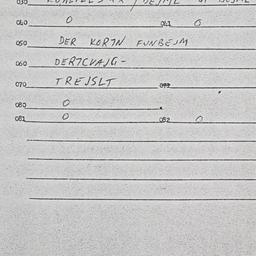 040 0 041 0
050 DER KORTN FUNBEJM
060 DERTCVAJG-
070 TREJSLT 077
080 0
081 0 082 0